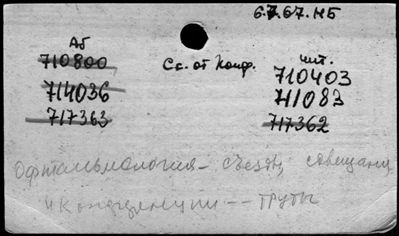 6.7.67. НБ
Аб
710800
714036
717363
Сс. от Конф.
чит.
710403
711083
717362
Офтальмология - съезды, совещани,
и конференции -- труды